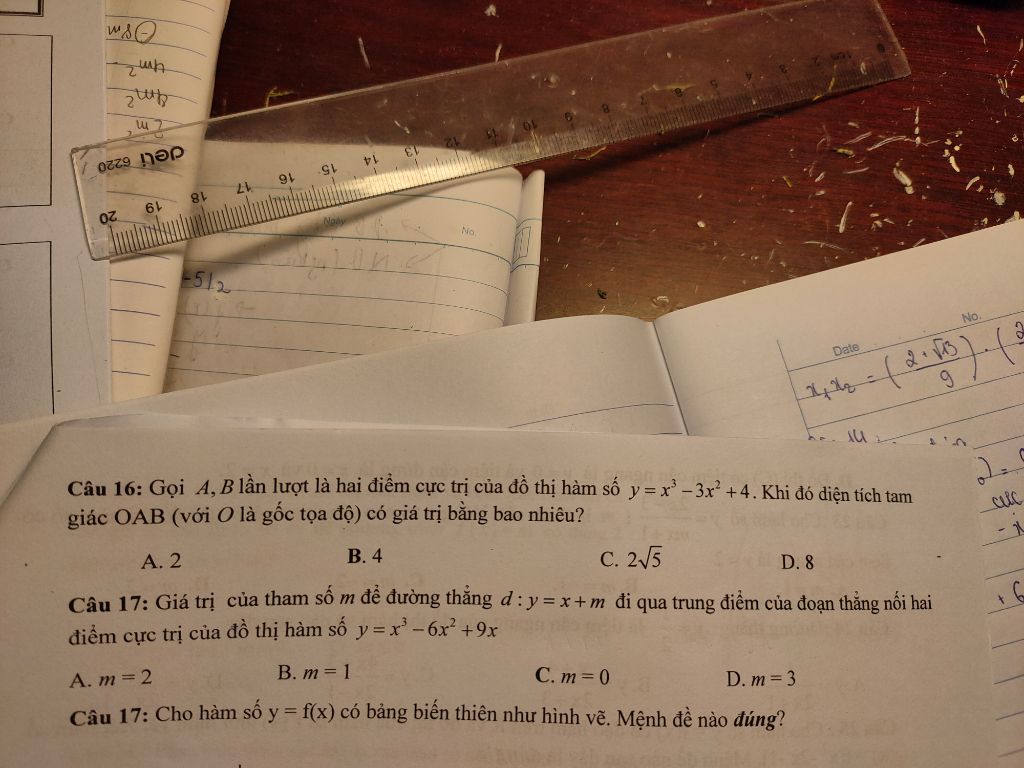 4m²
4m²
2m²
deli 6220
20 19 18 17 16 15 14 13 12 11 10 9 8 7 6 5 4 3 2 1cm
Ngày
No.
-5/2
No.
Date
x₁x₂ = (2+√13/9) · (2
Câu 16: Gọi A, B lần lượt là hai điểm cực trị của đồ thị hàm số y = x³ – 3x² + 4. Khi đó diện tích tam
giác OAB (với O là gốc tọa độ) có giá trị bằng bao nhiêu?
A. 2 B. 4 C. 2√5 D. 8
Câu 17: Giá trị của tham số m để đường thẳng d : y = x + m đi qua trung điểm của đoạn thẳng nối hai
điểm cực trị của đồ thị hàm số y = x³ – 6x² + 9x
A. m = 2 B. m = 1 C. m = 0 D. m = 3
Câu 17: Cho hàm số y = f(x) có bảng biến thiên như hình vẽ. Mệnh đề nào đúng?